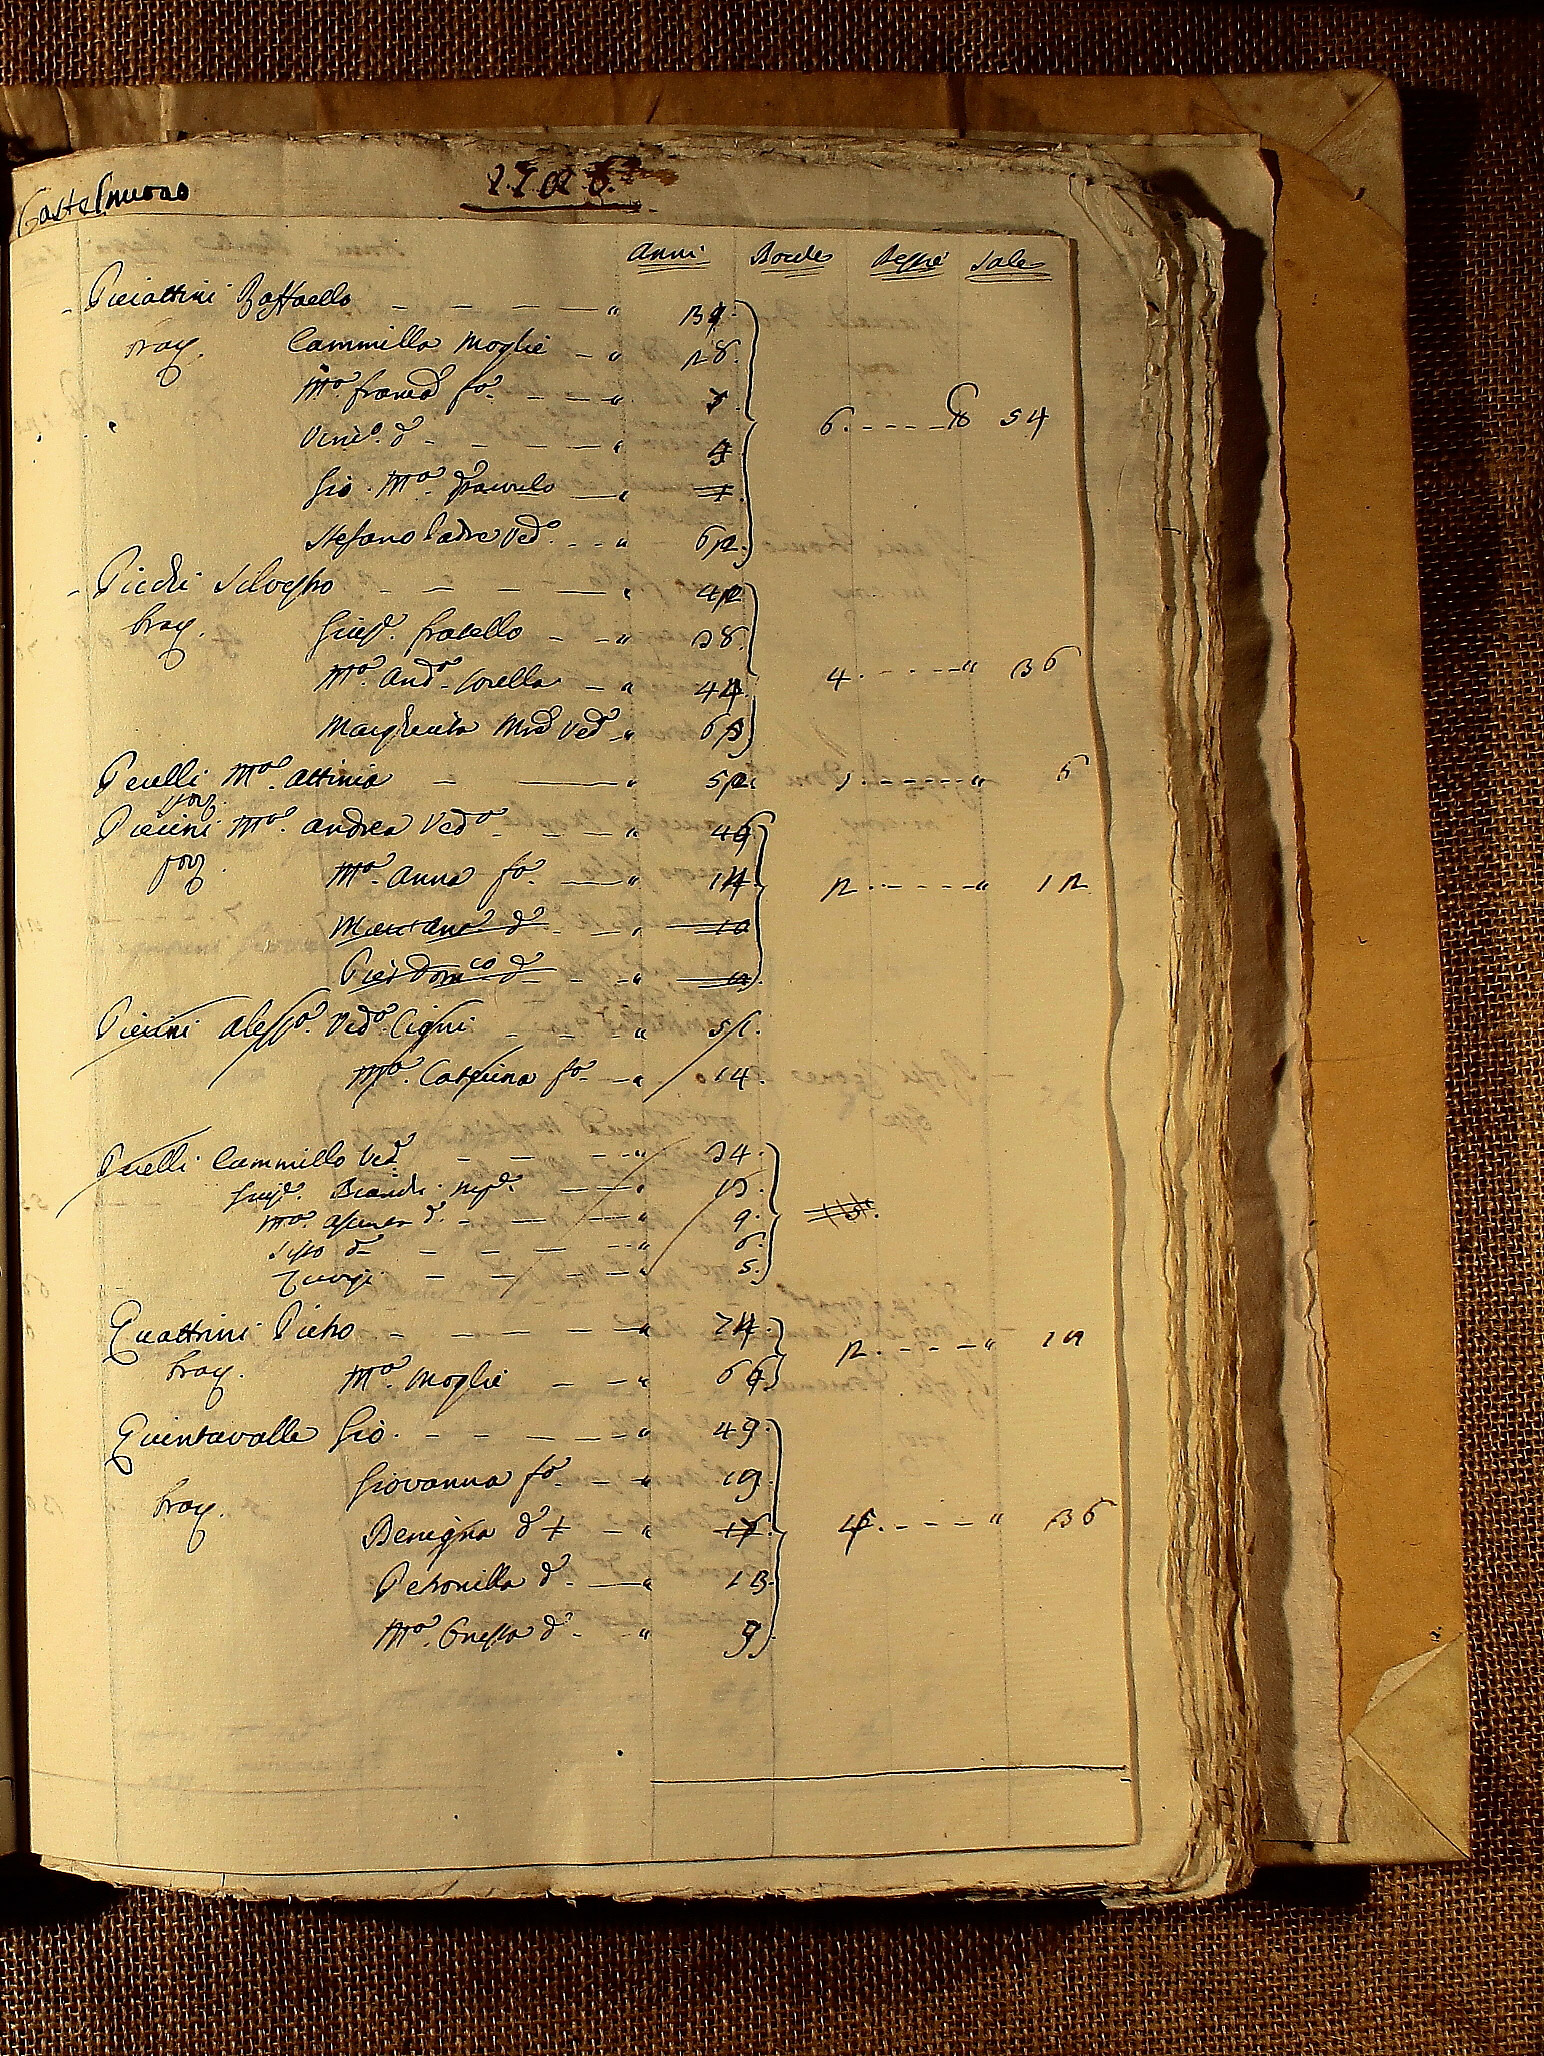 Castelnuovo
Anni Bocche Bestie Sale
Picciattini Raffaello " 39.
brac. Cammilla Moglie " 28.
Ma. Francca fa. " 7.
Vinco. do. " 4
Gio. Ma. " 1
6. 8 54
Stefano Padre Vedo. " 62.
Picchi Silvestro " 42
brac. Giusepe. fratello " 38.
4. " 36
Ma. Anda. Sorella " 44.
Margherita Mad Veda " 63
Perelli Ma. Attinia " 52. 1. " 6
pov.
Piccini Ma. Andrea Veda " 46
pov. Ma. Anna fa. " 14 2. " 12
Marcano do. " 10
Pier Domco do " 12
Piccini Alesso. Vedo. Cigni " 51.
Ma. Caterina fa. " 14.
Perelli Cammillo Vedo. " 34.
Giuspe. Bianchi nipe. " 13.
Ma. Assunta da. " 9.
Sisto do " 6.
" 5.
Quattrini Pietro " 74.
brac. Ma. Moglie " 64 2. " 12
Quintavalle Gio. " 49.
Giovanna fa. " 19.
brac. Benegna da + " 17. 4. " 36
Petronilla da. " 13.
Ma. Onesta da. " 9